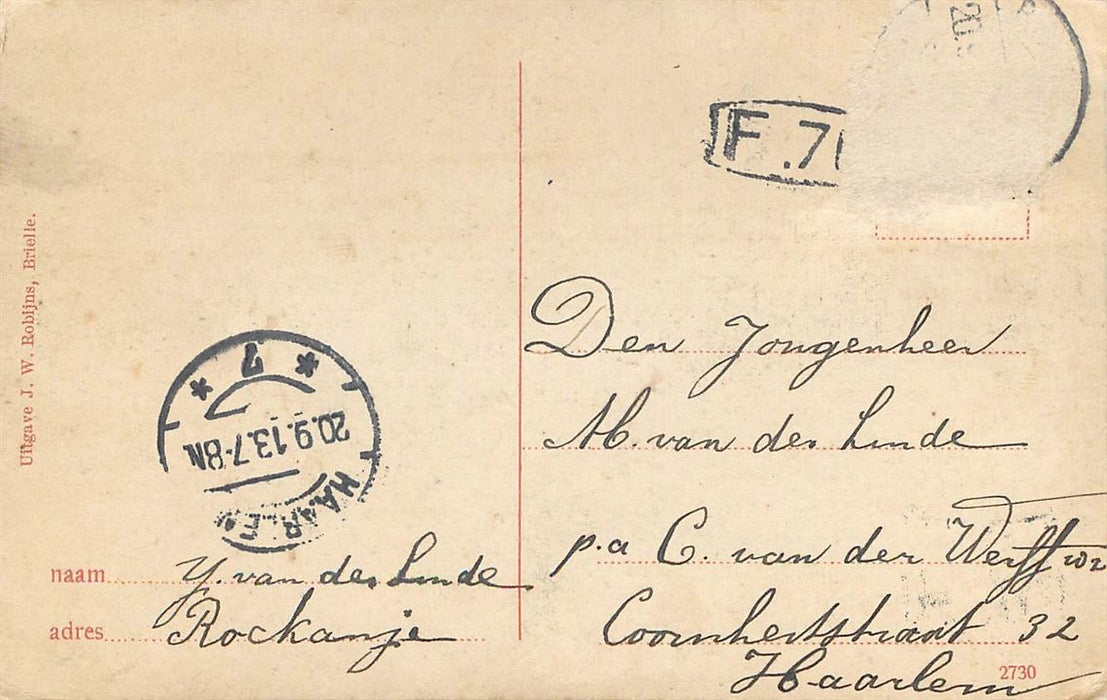 20.
F.7
Uitgave J. W. Robijns, Brielle.
7
20.9.13.7-8N
HAARLEM
Den Jongenheer
Ab. van der Linde
p.a C. van der Werff
Coornhertstraat 32
Haarlem
naam Y. van der Linde
adres Rockanje
2730